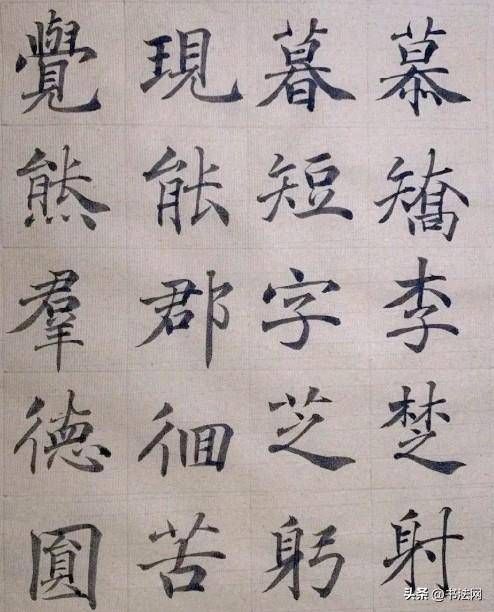 慕矯李楚射
暮短字芝躬
現能郡徊苦
覺熊羣德圓
头条 @书法网